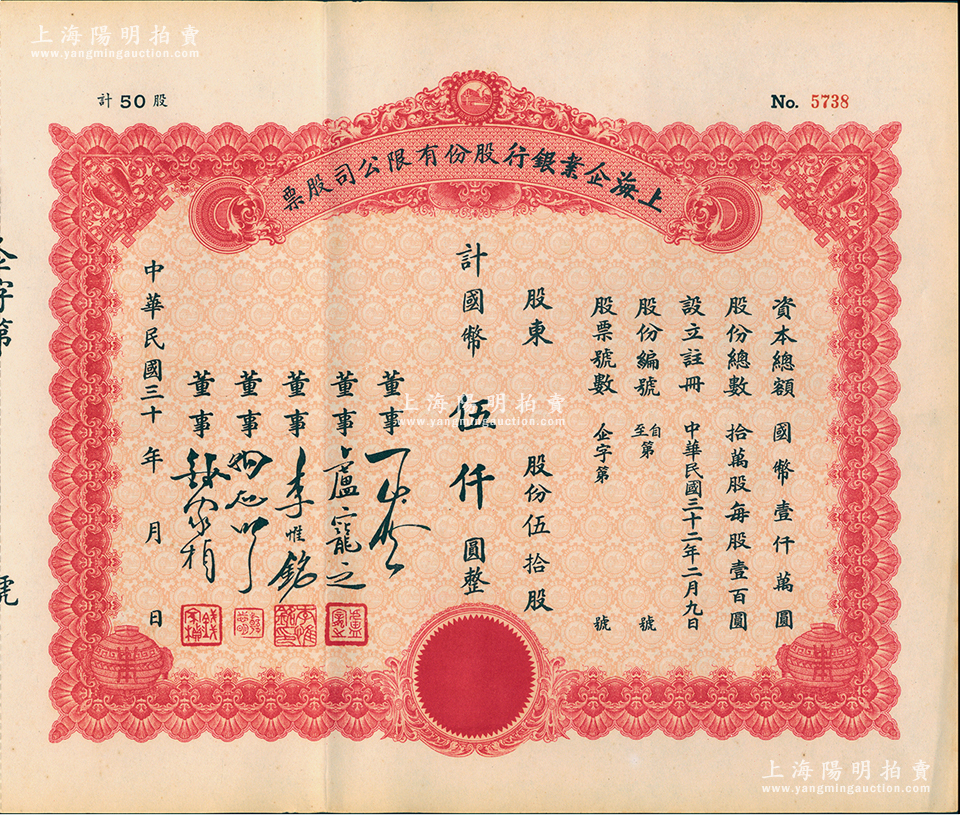 上海陽明拍賣
www.yangmingauction.com
計 50 股
No. 5738
上海企業銀行股份有限公司股票
資本總額 國幣壹仟萬圓
股份總數 拾萬股每股壹百圓
設立註冊 中華民國三十二年二月九日
股份編號 自至第 號
股票號數 企字第 號
股東 股份伍拾股
計國幣 伍仟 圓整
董事
董事 盧寵之
董事 李惟銘
董事
董事 錢家楨
中華民國三十 年 月 日
企字第 號
上海陽明拍賣
www.yangmingauction.com
上海陽明拍賣
www.yangmingauction.com